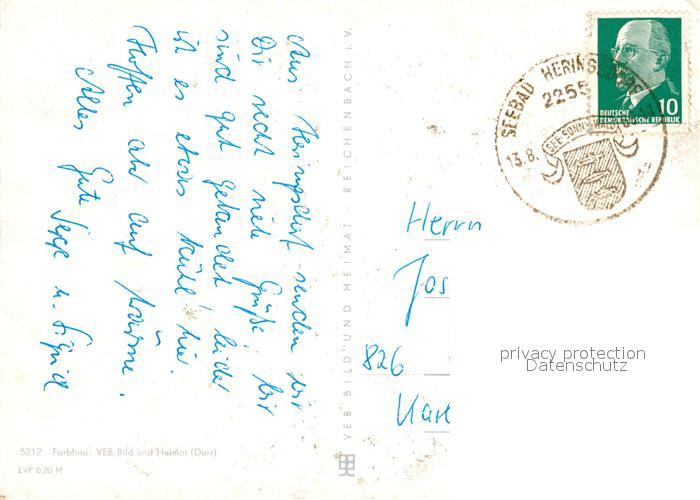 Aus Heringsdorf senden wir
Dir recht viele Grüße. Wir
sind gut gelandet leider
ist es etwas kühl hier.
Hoffen aber auf Wärme.
Alles Gute Sepp u. Sigrid
VEB BILD UND HEIMAT · REICHENBACH I. V.
SEEBAD HERINGSDORF
2255
SEE-SONNE-WALD
13.8.
10
DEUTSCHE
DEMOKRATISCHE REPUBLIK
Herrn
Jos
826
privacy protection
Datenschutz
5212 Farbfoto: VEB Bild und Heimat (Darr)
EVP 0.20 M